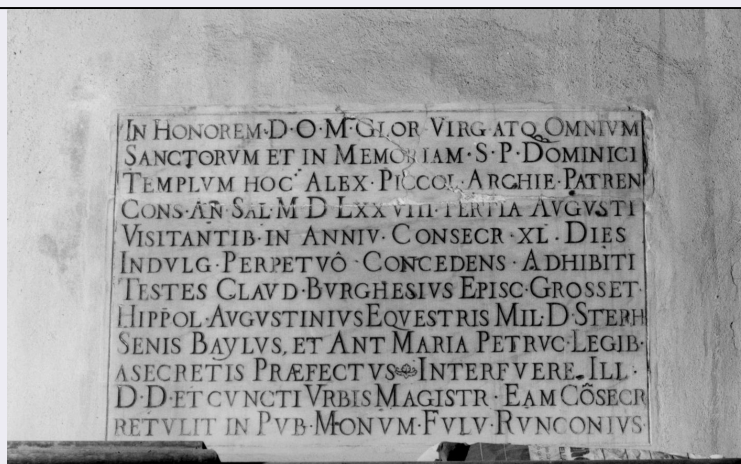 IN HONOREM·D·O·M·GLOR VIRG ATQ OMNIVM
SANCTORVM ET IN MEMORIAM·S·P·DOMINICI
TEMPLVM HOC ALEX·PICCOL·ARCHIE·PATREN
CONS·AÑ·SAL·M D LXXVIII·TERTIA AVGVSTI
VISITANTIB·IN ANNIV·CONSECR·XL·DIES
INDVLG·PERPETVÔ·CONCEDENS·ADHIBITI
TESTES CLAVD·BVRGHESIVS EPISC·GROSSET·
HIPPOL·AVGVSTINIVS EQVESTRIS MIL·D·STEPH
SENIS BAYLVS, ET ANT MARIA PETRVC·LEGIB·
ASECRETIS PRÆFECTVS INTERFVERE·ILL·
D·D·ET CVNCTI VRBIS MAGISTR·EAM CÕSECR
RETVLIT IN PVB·MONVM·FVLV·RVNCONIVS·